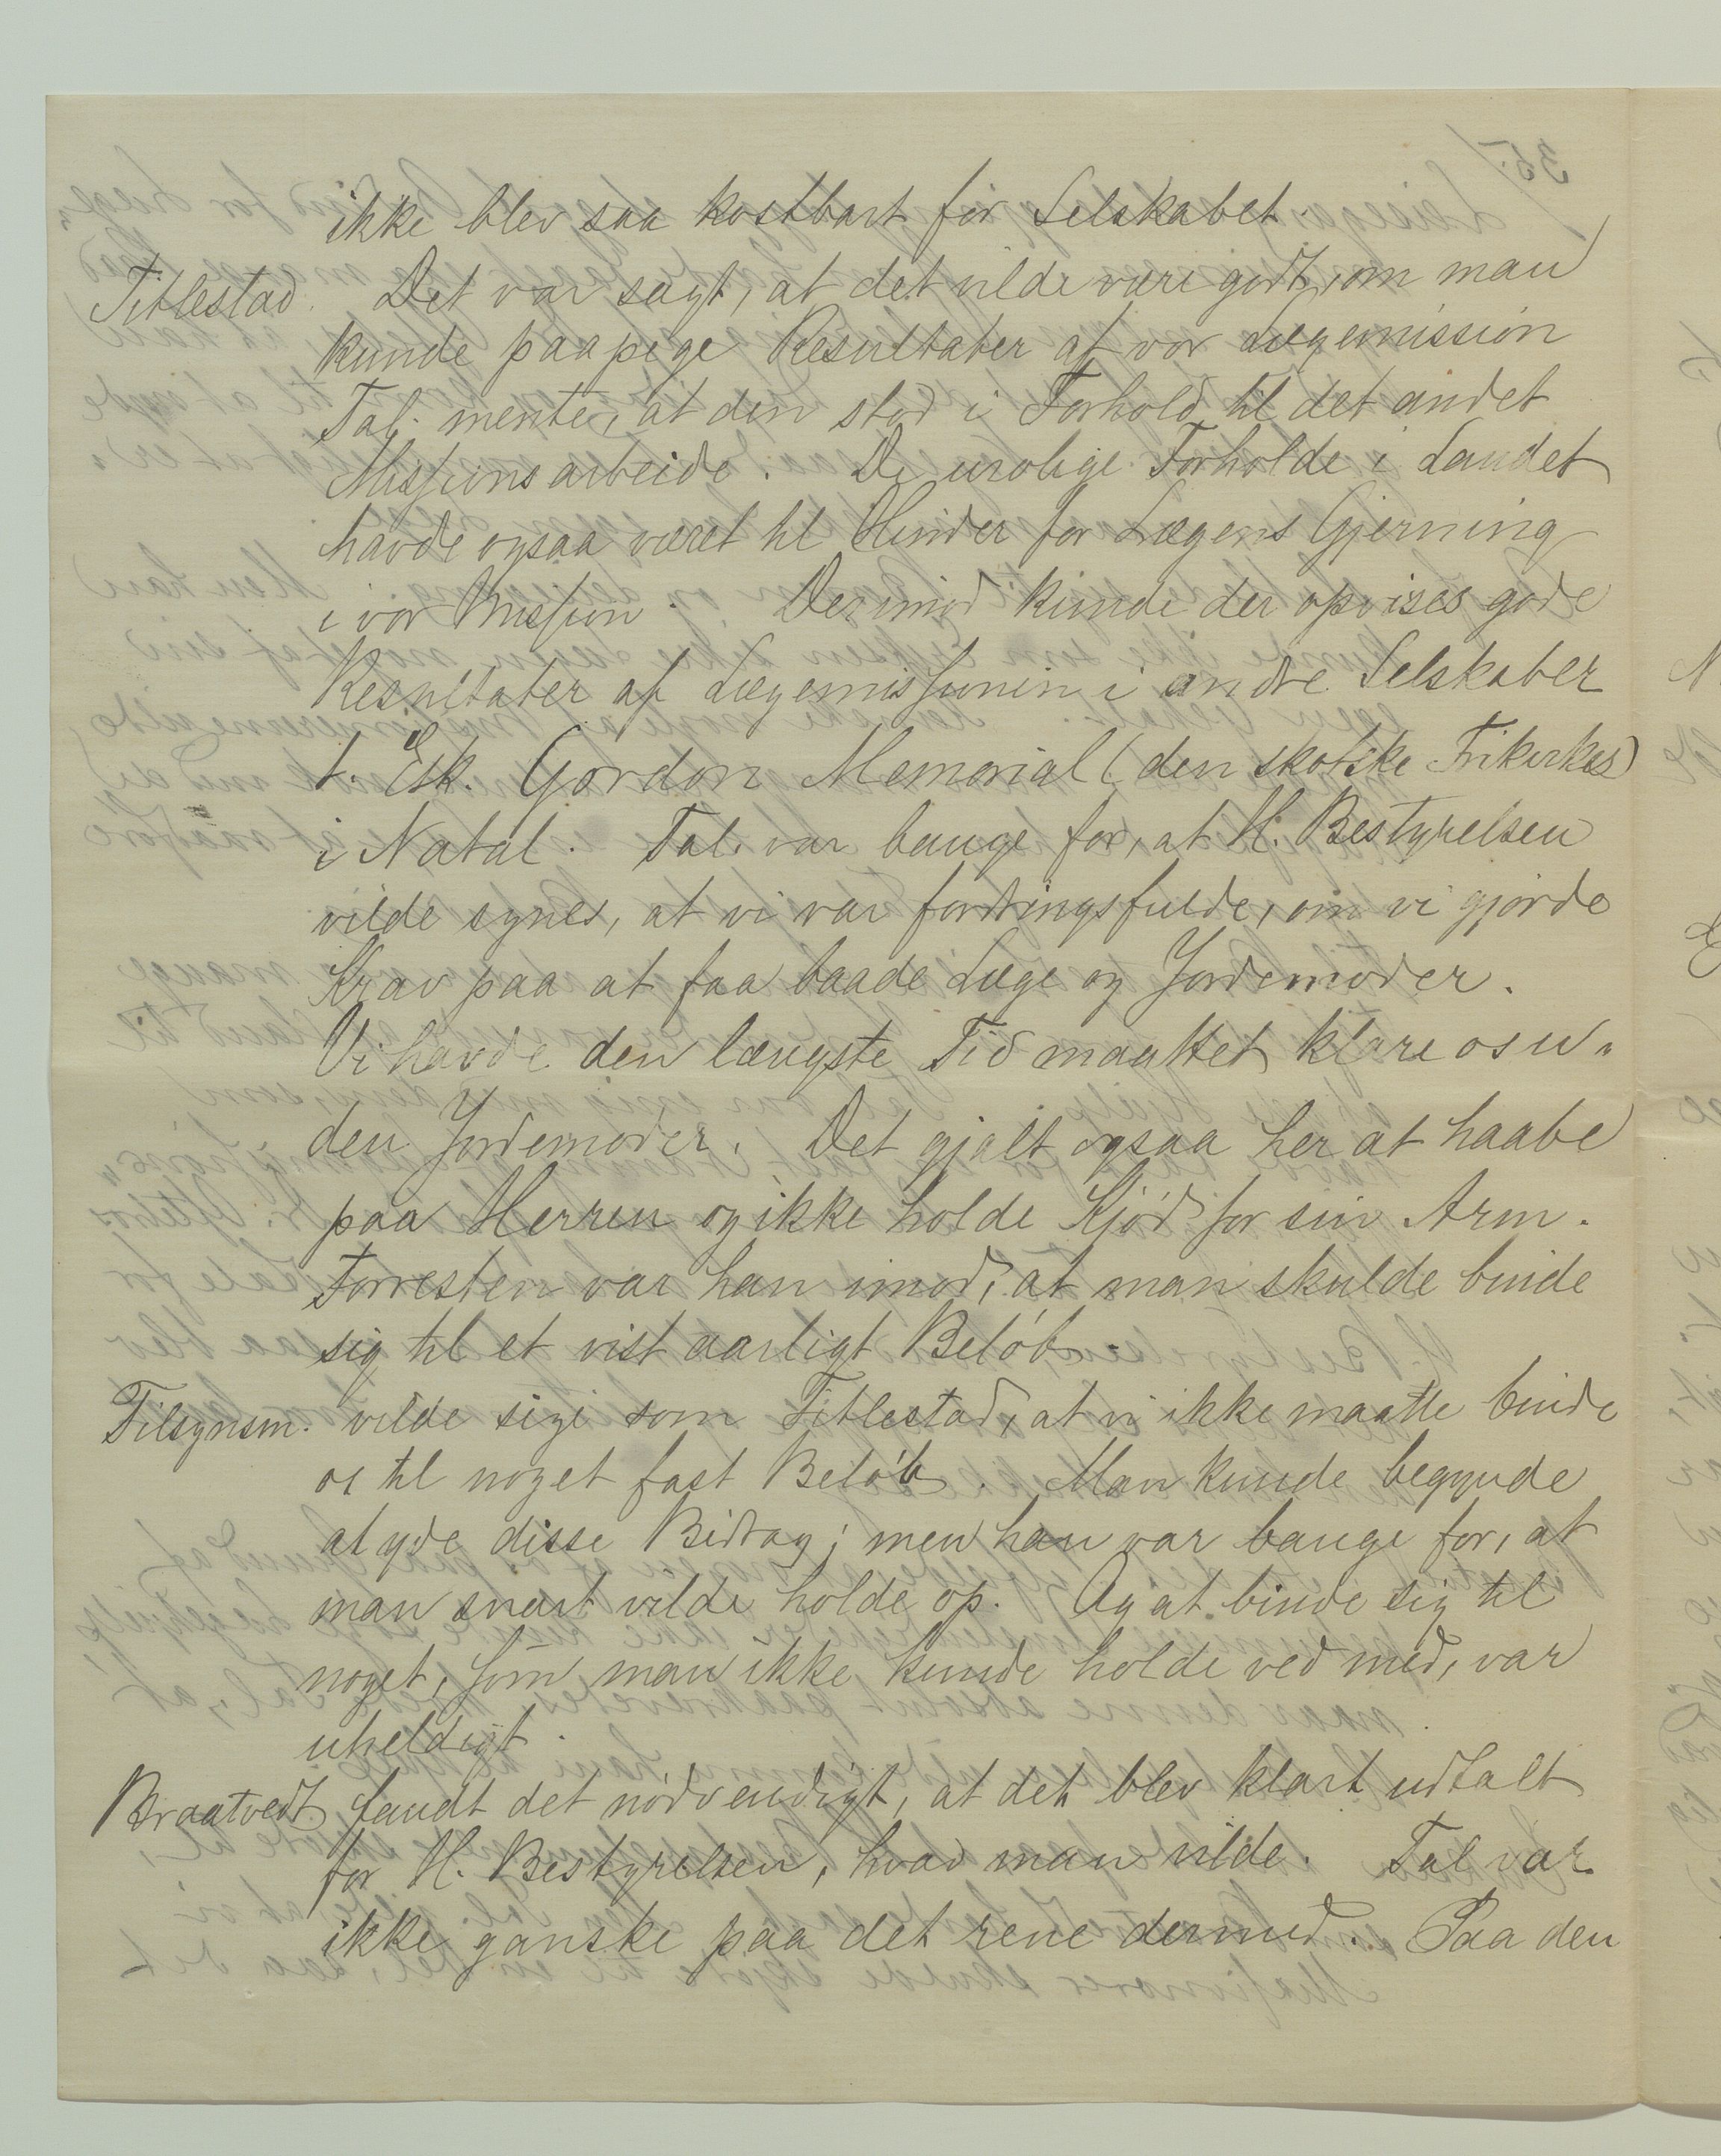 ikke blev saa kostbart for Selskabet.
Titlestad. Det var sagt, at det vilde være godt, om man
kunde paapege Resultater af vor Lægemission
Tal. mente, at den stod i Forhold til det andet
Missionsarbeide. De urolige Forholde i Landet
havde ogsaa været til Hinder for Lægens Gjerning
i vor Mission. Derimod kunde der opvises gode
Resultater af Lægemissionen i andre Selskaber
f. Esk. Gordon Memorial (den skotske Frikirkes)
i Natal. Tal. var bange for, at H. Bestyrelsen
vilde synes, at vi var fordringsfulde, om vi gjorde
Krav paa at faa baade Læge og Jordemoder.
Vi havde den længste Tid maattet klare os u-
den Jordemoder. Det gjalt ogsaa her at haabe
paa Herren og ikke holde Kjød for sin Arm.
Forresten var han imod, at man skulde binde
sig til et vist aarligt Beløb.
Tilsynsm. vilde sige som Titlestad, at vi ikke maatte binde
os til noget fast Beløb. Man kunde begynde
at yde disse Bidrag; men han var bange for, at
man snart vilde holde op. Og at binde sig til
noget, som man ikke kunde holde ved med, var
uheldigt.
Braatvedt fandt det nødvendigt, at det blev klart udtalt
for H. Bestyrelsen, hvad man vilde. Tal var
ikke ganske paa det rene dermed. Paa den